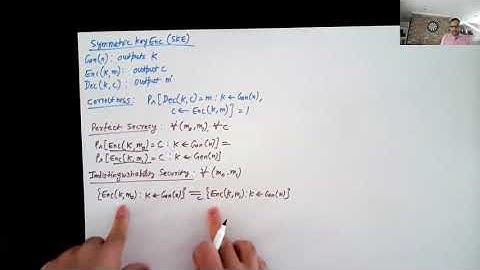 Symmetric Key Enc (SKE)
Gen(n): outputs K
Enc(K,m): output c
Dec(K,c): output m'
Correctness: Pr[Dec(K,c)=m : K ← Gen(n),
c ← Enc(K,m)] = 1
Perfect Secrecy: ∀ (m₀,m₁) ∀ c
Pr[Enc(K,m₀) = c : K ← Gen(n)] =
Pr[Enc(K,m₁) = c : K ← Gen(n)]
Indistinguishability Security: ∀ (m₀,m₁)
{Enc(K,m₀) : K ← Gen(n)} ≈c {Enc(K,m₁) : K ← Gen(n)}